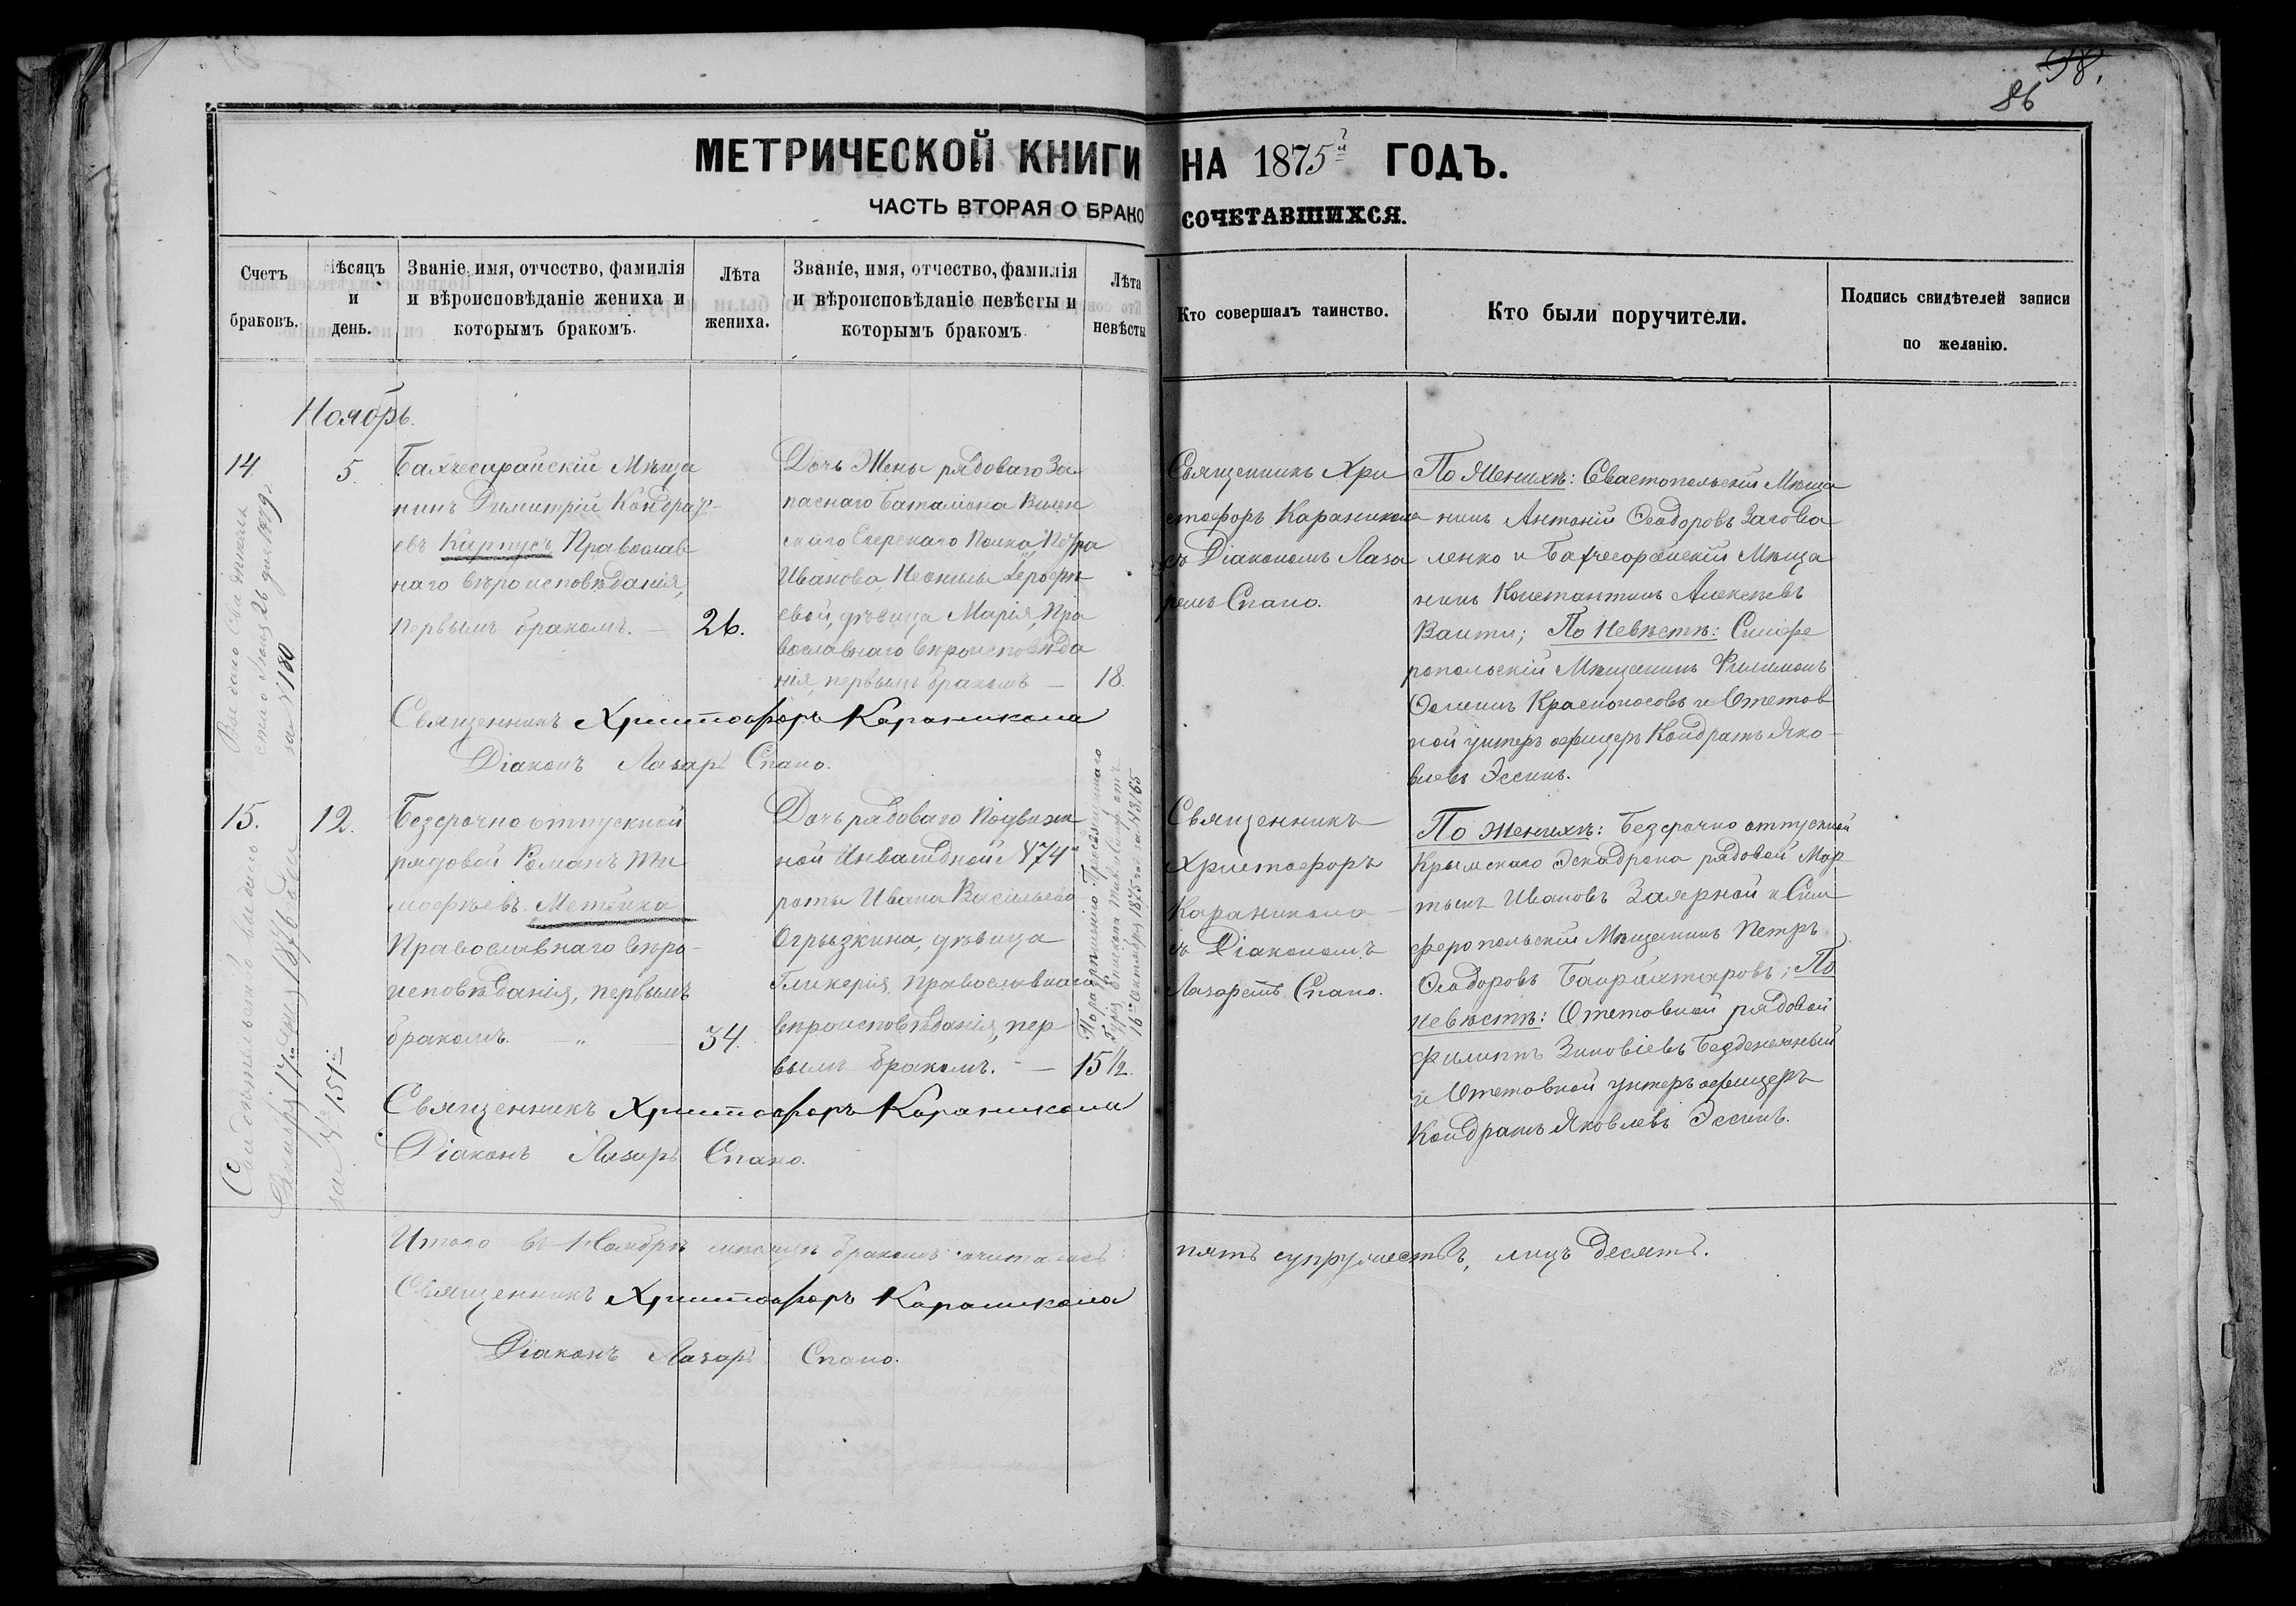 98.
86
МЕТРИЧЕСКОЙ КНИГИ НА 1875й ГОДЪ.
ЧАСТЬ ВТОРАЯ О БРАКОСОЧЕТАВШИХСЯ.
Счетъ браковъ.
Мѣсяцъ и день.
Званіе, имя, отчество, фамилія
и вѣроисповѣданіе жениха и
которымъ бракомъ.
Лѣта
жениха.
Званіе, имя, отчество, фамилія
и вѣроисповѣданіе невѣсты и
которымъ бракомъ
Лѣта
невѣсты
Кто совершалъ таинство.
Кто были поручители.
Подпись свидѣтелей записи
по желанію.
Ноябрь.
14
5.
Бахчесарайскій Мѣща
нинъ Димитрій Кондрать
евъ Карпусъ Православ
наго вѣроисповѣданія,
первымъ бракомъ. —
26.
Дочь Жены рядоваго За
паснаго баталіона Вилен
скаго Егерскаго Полка Петра
Иванова, Неонилы Дерофѣ
евой, дѣвица Марія, Пра
вославнаго вѣроисповѣда
нія, первымъ бракомъ —
18.
Священникъ Хри
стофоръ Караникола
съ Діакономъ Лаза
ремъ Спано.
По Женихѣ: Севастопольскій Мѣща
нинъ Антоній Ѳеодоровъ Загова
ленко и Бахчесарайскій Мѣща
нинъ Константинъ Алексѣевъ
Ванти; По Невѣстѣ: Симфе
ропольскій Мѣщанинъ Филимонъ
Ѳоминъ Красноносовъ и Отстав
ной унтеръ офицеръ Кондратъ Яко-
влевъ Эссинъ.
Выдано свидѣтель
ство Іюня 26 дня 1879 г.
за № 180
Священникъ Христофоръ Караникола
Діаконъ Лазарь Спано.
15.
12.
Безсрочно отпускной
рядовой Романъ Ти
мофѣевъ Метейко
Православнаго вѣро-
исповѣданія, первымъ
бракомъ. — „ —
34.
Дочь рядоваго Подвиж
ной Инвалидной № 74й
роты Ивана Васильева
Огрызкина, дѣвица
Гликерія, Православнаго
вѣроисповѣданія, пер
вымъ бракомъ. —
15½.
По разрѣшенію Преосвященнаго
Гурія Епископа Тавричес. отъ
16го Октября 1875 год. за № 3165
Священникъ
Христофоръ
Караникола
съ Діакономъ
Лазаремъ Спано.
По Женихѣ: Безсрочно отпускной
Крымскаго Эскадрона рядовой Мар
тынъ Ивановъ Заярной и Сим
феропольскій Мѣщанинъ Петръ
Ѳеодоровъ Байрахтаровъ; По
невѣстѣ: Отставной рядовой
Филиппъ Зиновіевъ Безденежный
и Отставной унтеръ офицеръ
Кондратъ Яковлевъ Эссинъ.
Свидѣтельство выдано
Декабря 17го дня 1876 года
за № 151й
Священникъ Христофоръ Караникола
Діаконъ Лазарь Спано.
Итого въ Ноябрѣ мѣсяцѣ бракомъ сочитались: пять супружествъ, лицъ десять.
Священникъ Христофоръ Караникола
Діаконъ Лазарь Спано.